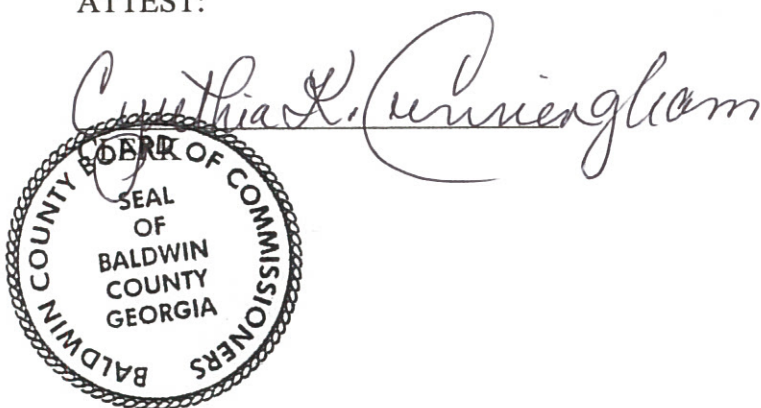 ATTEST:
Cynthia K. Cunningham
CLERK
BALDWIN COUNTY BOARD OF COMMISSIONERS
SEAL
OF
BALDWIN
COUNTY
GEORGIA